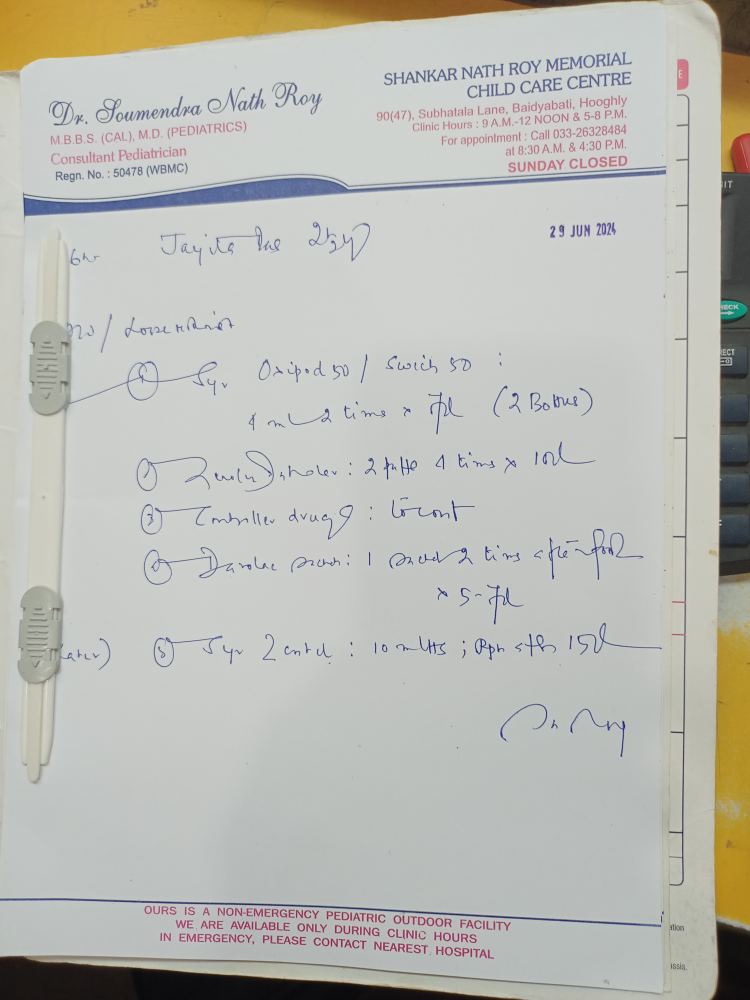 Dr. Soumendra Nath Roy
M.B.B.S. (CAL), M.D. (PEDIATRICS)
Consultant Pediatrician
Regn. No. : 50478 (WBMC)
SHANKAR NATH ROY MEMORIAL
CHILD CARE CENTRE
90(47), Subhatala Lane, Baidyabati, Hooghly
Clinic Hours : 9 A.M.-12 NOON & 5-8 P.M.
For appointment : Call 033-26328484
at 8:30 A.M. & 4:30 P.M.
SUNDAY CLOSED
29 JUN 2024
6hr Jayita Das
① Syr Oxipod 50 / Swich 50 :
4 ml 2 times x 7d (2 Bottles)
Inhaler : 2 puffs 4 times x 10d
③ Controller drug : to cont
④ Darolac sachet : 1 sachet 2 times after food
x 5-7d
⑤ Syr Zentel : 10 ml HS ; Rpt after 15d
OURS IS A NON-EMERGENCY PEDIATRIC OUTDOOR FACILITY
WE ARE AVAILABLE ONLY DURING CLINIC HOURS
IN EMERGENCY, PLEASE CONTACT NEAREST HOSPITAL